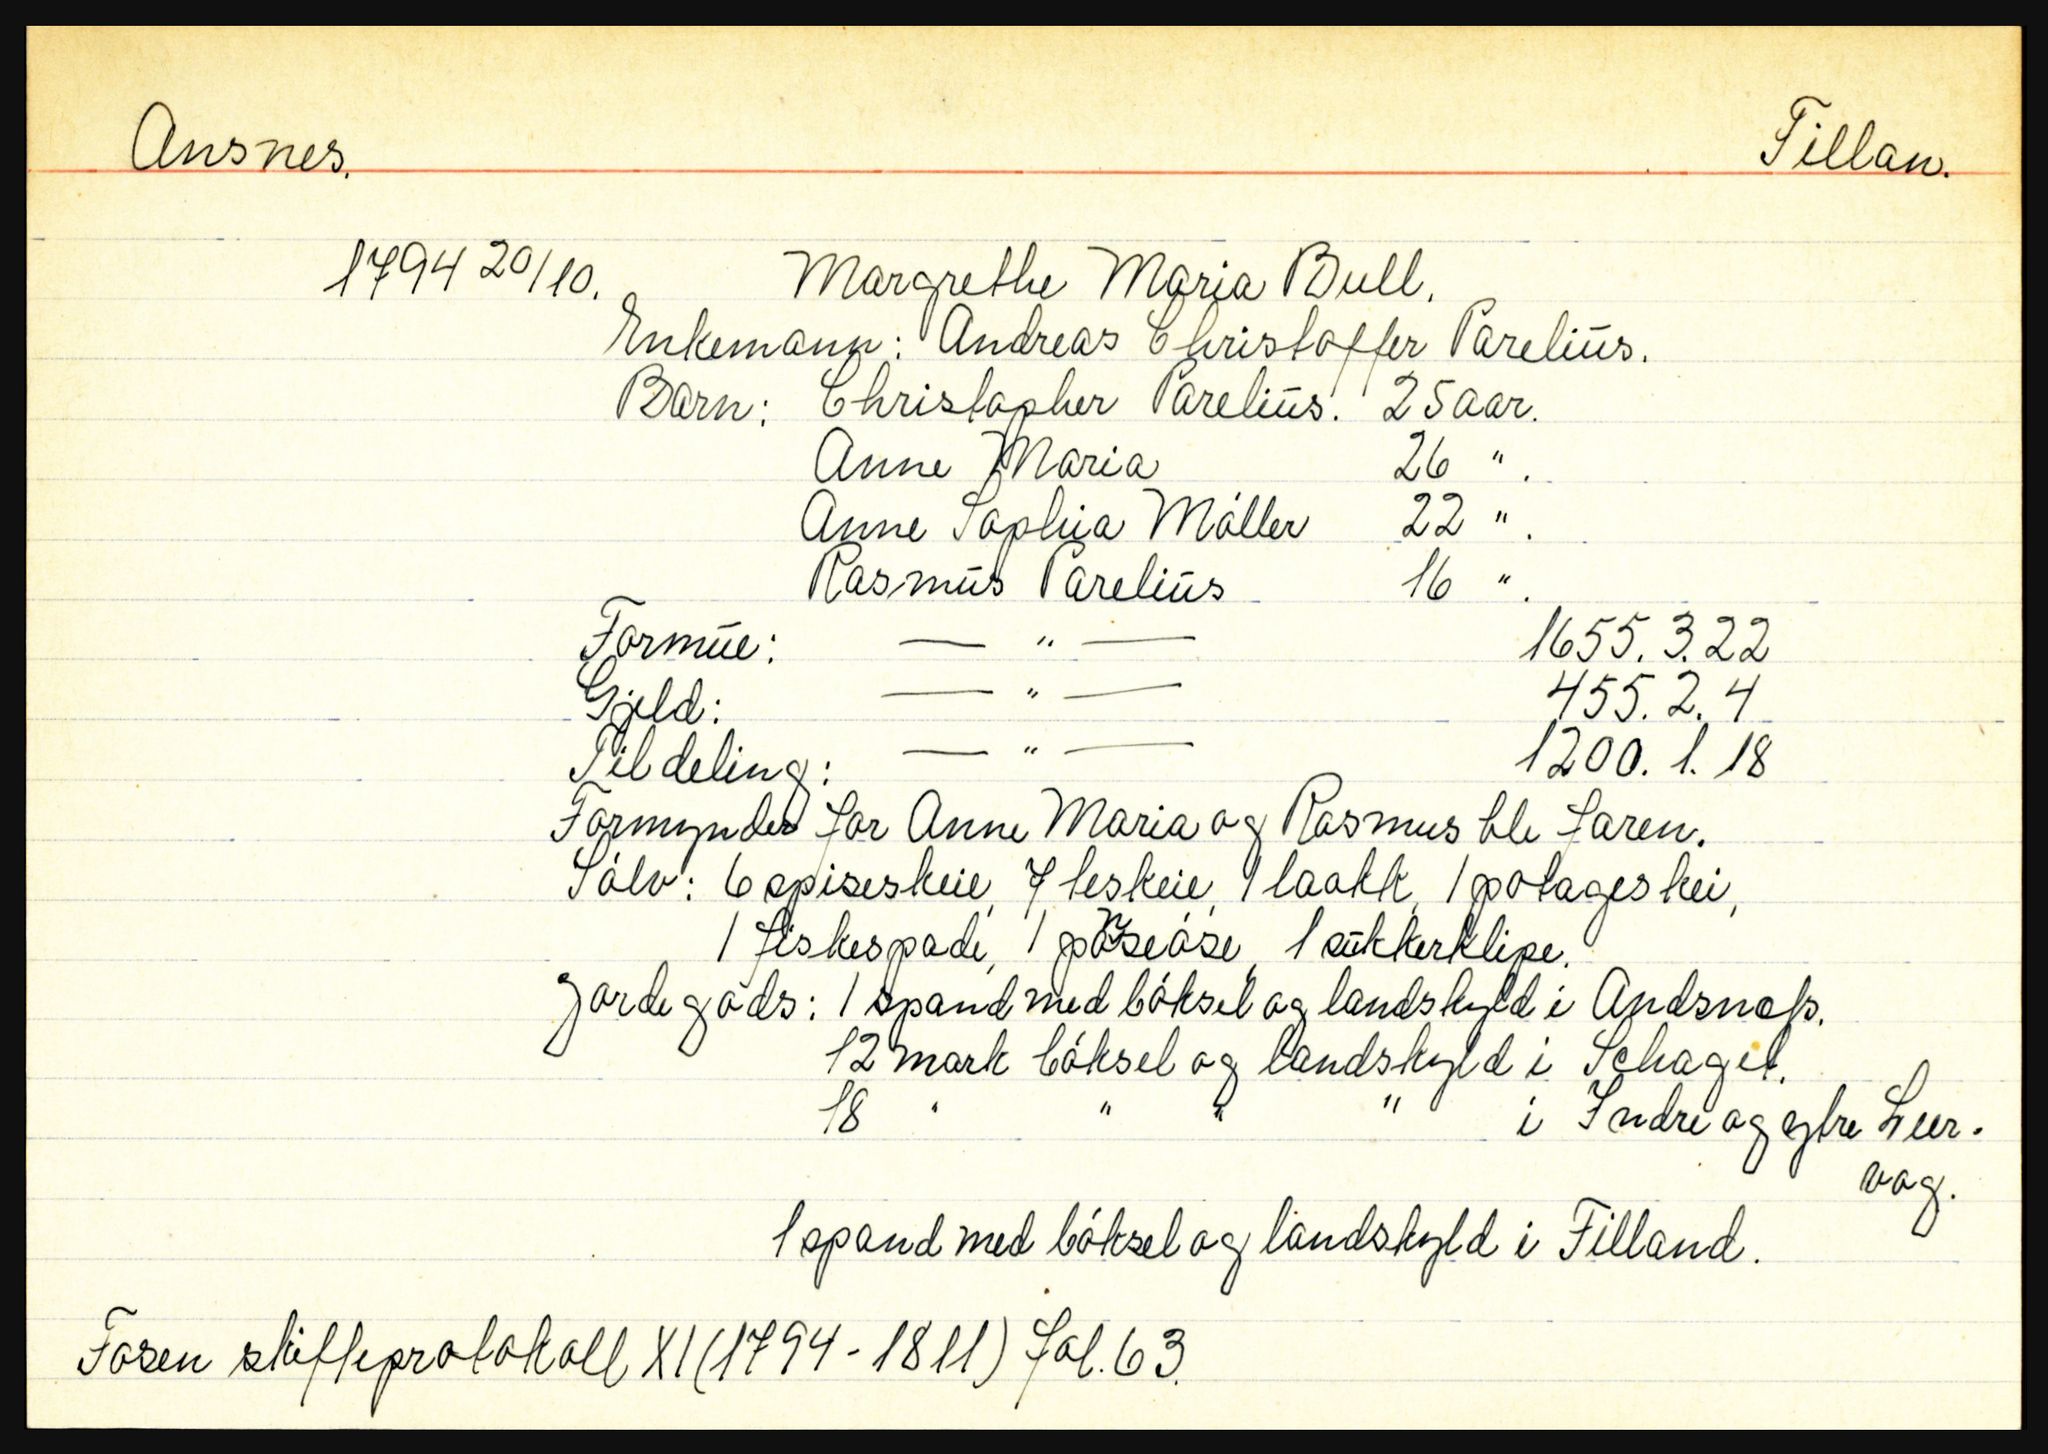 Ansnes. Fillan.
1794 20/10. Margrethe Maria Bull.
Enkemann: Andreas Christoffer Parelius.
Barn: Christopher Parelius. 25 aar.
Anne Maria 26 ".
Anne Sophia Móller 22 ".
Rasmus Parelius 16 ".
Formue: — " — 1655. 3. 22
Gjeld: — " — 455. 2. 4
Til deling: — " — 1200. 1. 18
Formynder for Anne Maria og Rasmus ble faren.
Sólv: 6 spiseskeie, 7 teskeie, 1 laakk, 1 potageskei,
1 fiskespade, 1 óse, 1 sukkerklipe.
Jordegods: 1 spand med bóksel og landskyld i Andsnæss.
12 mark bóksel og landskyld i Schaget.
18 " " " " i Indre og ytre Leer-
vog.
1 spand med bóksel og landskyld i Filland.
Fosen skifteprotokoll XI (1794-1811) fol. 63.